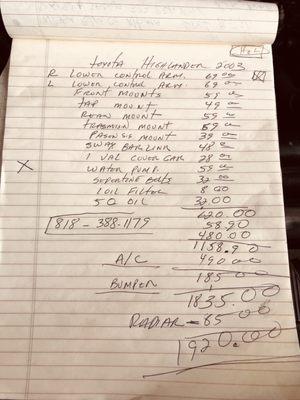 H&L
TOYOTA HIGHLANDER 2003
R LOWER CONTROL ARM. 69 00
L LOWER CONTROL ARM. 69 00
FRONT MOUNTS 59 00
TAP MOUNT 49 00
REAR MOUNT 59 00
TRASMION MOUNT 59 00
PASENGE MOUNT 39 00
SWAY BAR LINK 48 00
1 VAL COVER GAK 28 00
X WATER PUMP. 59 00
SERPENTINE BELTS 32 00
1 OIL FILTER 8 00
5 Q OIL 32.00
620.00
818-388-1179 58.90
480.00
1158.90
A/C 490 00
BUMPER 185 00
1835.00
RADIAR - 85 00
1920.00